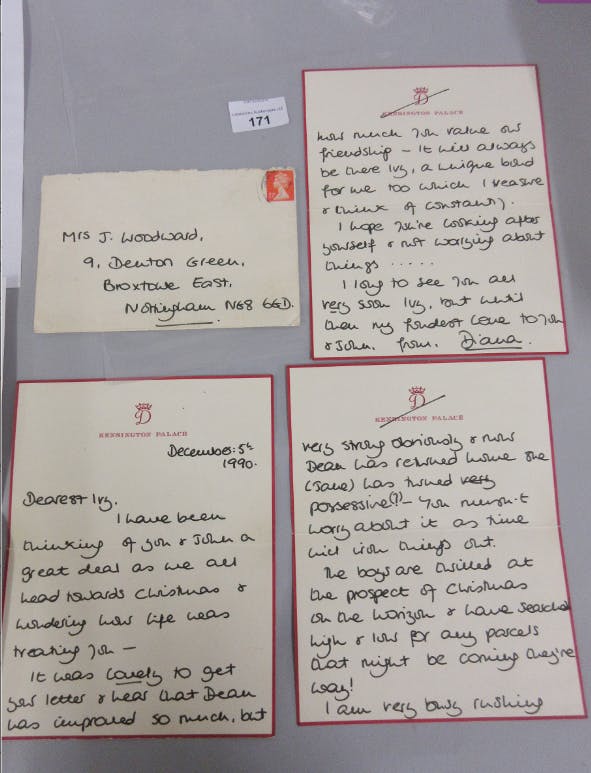 171
Mrs J. Woodward,
9, Denton Green,
Broxtowe East,
Nottingham NG8 6GD.
D
KENSINGTON PALACE
December: 5th
1990.
Dearest Ivy,
I have been
thinking of you & John a
great deal as we all
head towards Christmas &
wondering how life was
treating you —
It was lovely to get
your letter & hear that Dean
has improved so much, but
D
KENSINGTON PALACE
very strong obviously & now
Dean has returned home she
(Jane) has turned very
possessive(?) — you mustn't
worry about it as time
will iron things out.
The boys are thrilled at
the prospect of Christmas
on the horizon & have searched
high & low for any parcels
that might be coming they're
way!
I am very busy rushing
D
KENSINGTON PALACE
how much you value our
friendship — it will always
be there Ivy, a unique bond
for me too which I treasure
& think of constantly.
I hope you're looking after
yourself & not worrying about
things .....
I long to see you all
very soon Ivy, but until
then my fondest love to you
& John, from, Diana.